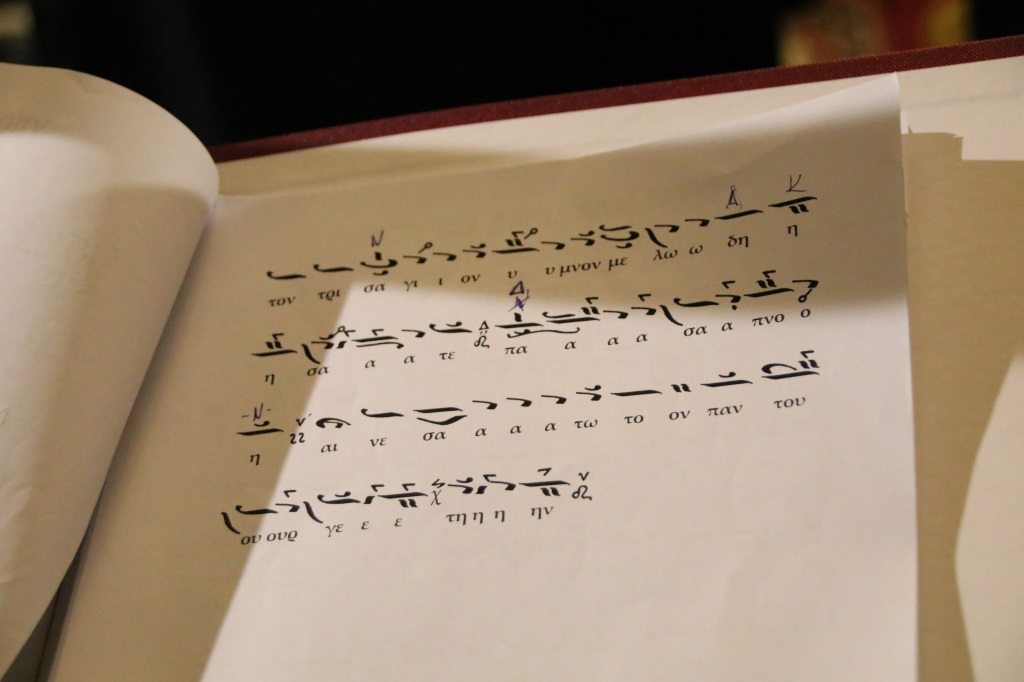 τον τρι σα γι ι ον υ υ μνον με λω ω δη η
η σα α α τε πα α α α σα α πνο ο
η αι νε σα α α α τω το ον παν του
ου ουρ γε ε ε τη η η ην